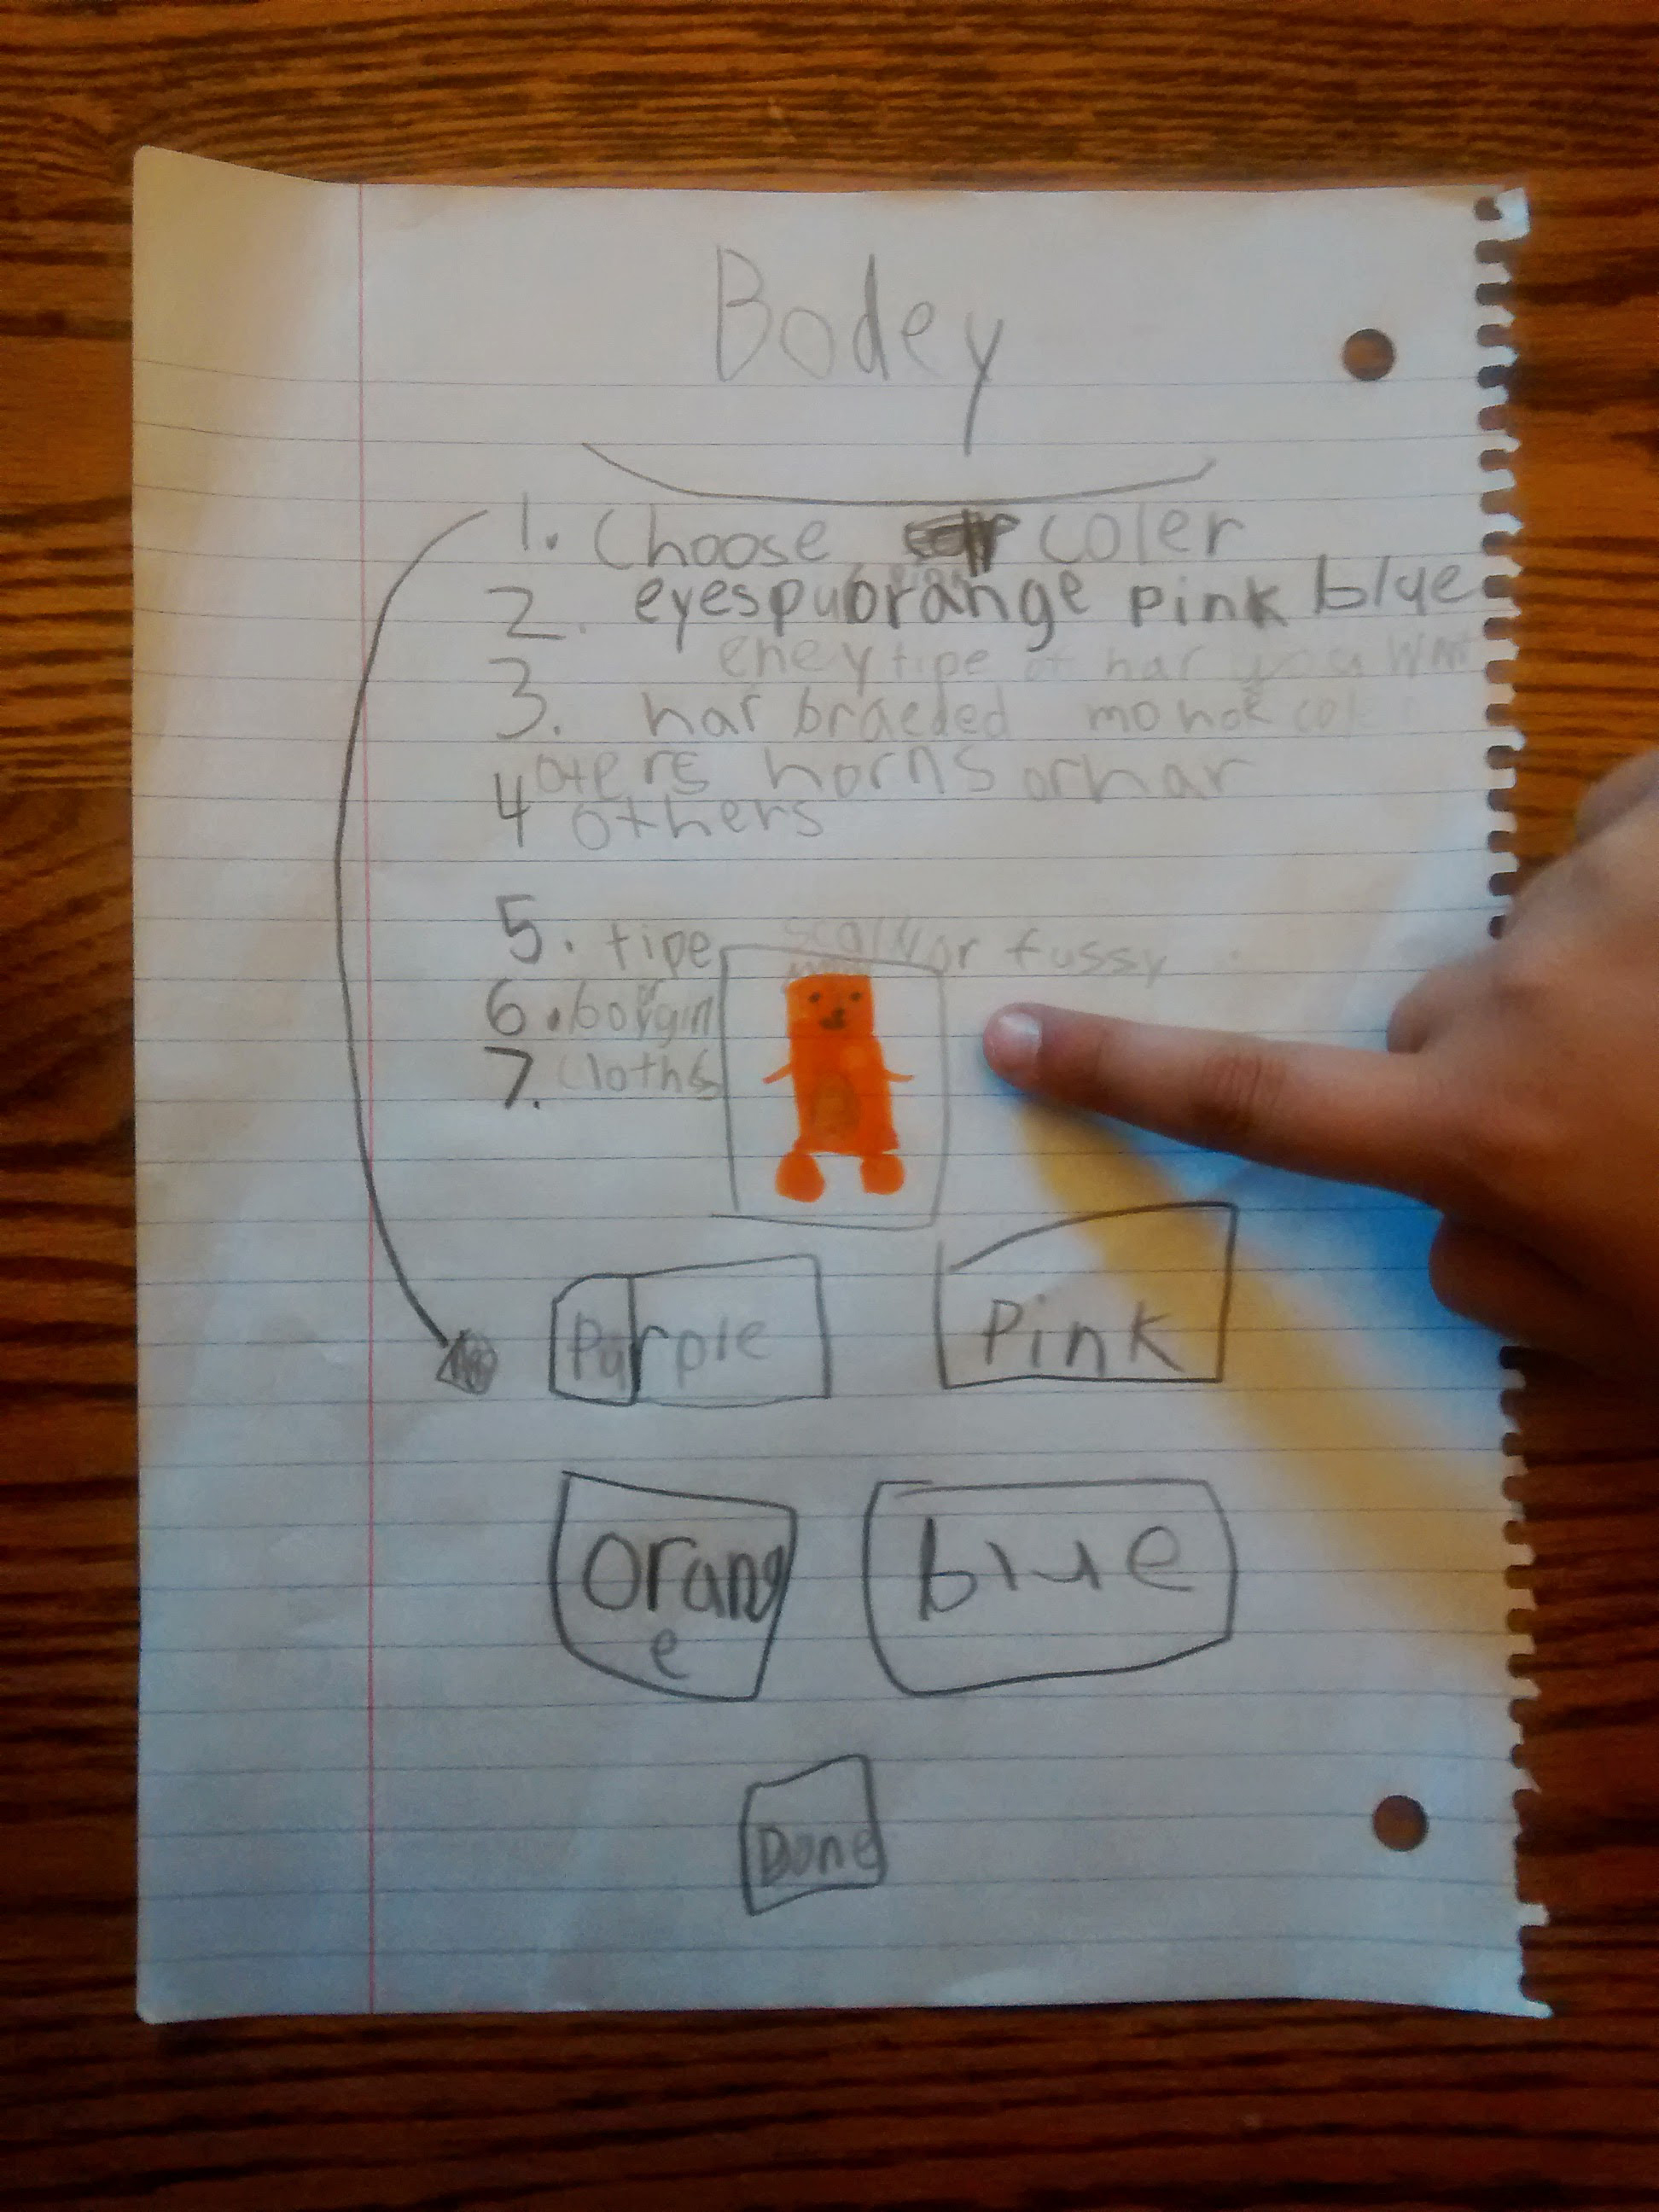 Bodey
1. Choose coler
2. eyes pu orange pink blue
eney tipe of har you wnt
3. har braeded mohok col
oters horns or har
4 others
5. tipe scaly or fussy
6. boy or girl
7. cloths
Purple
Pink
Orang
e
blue
Done